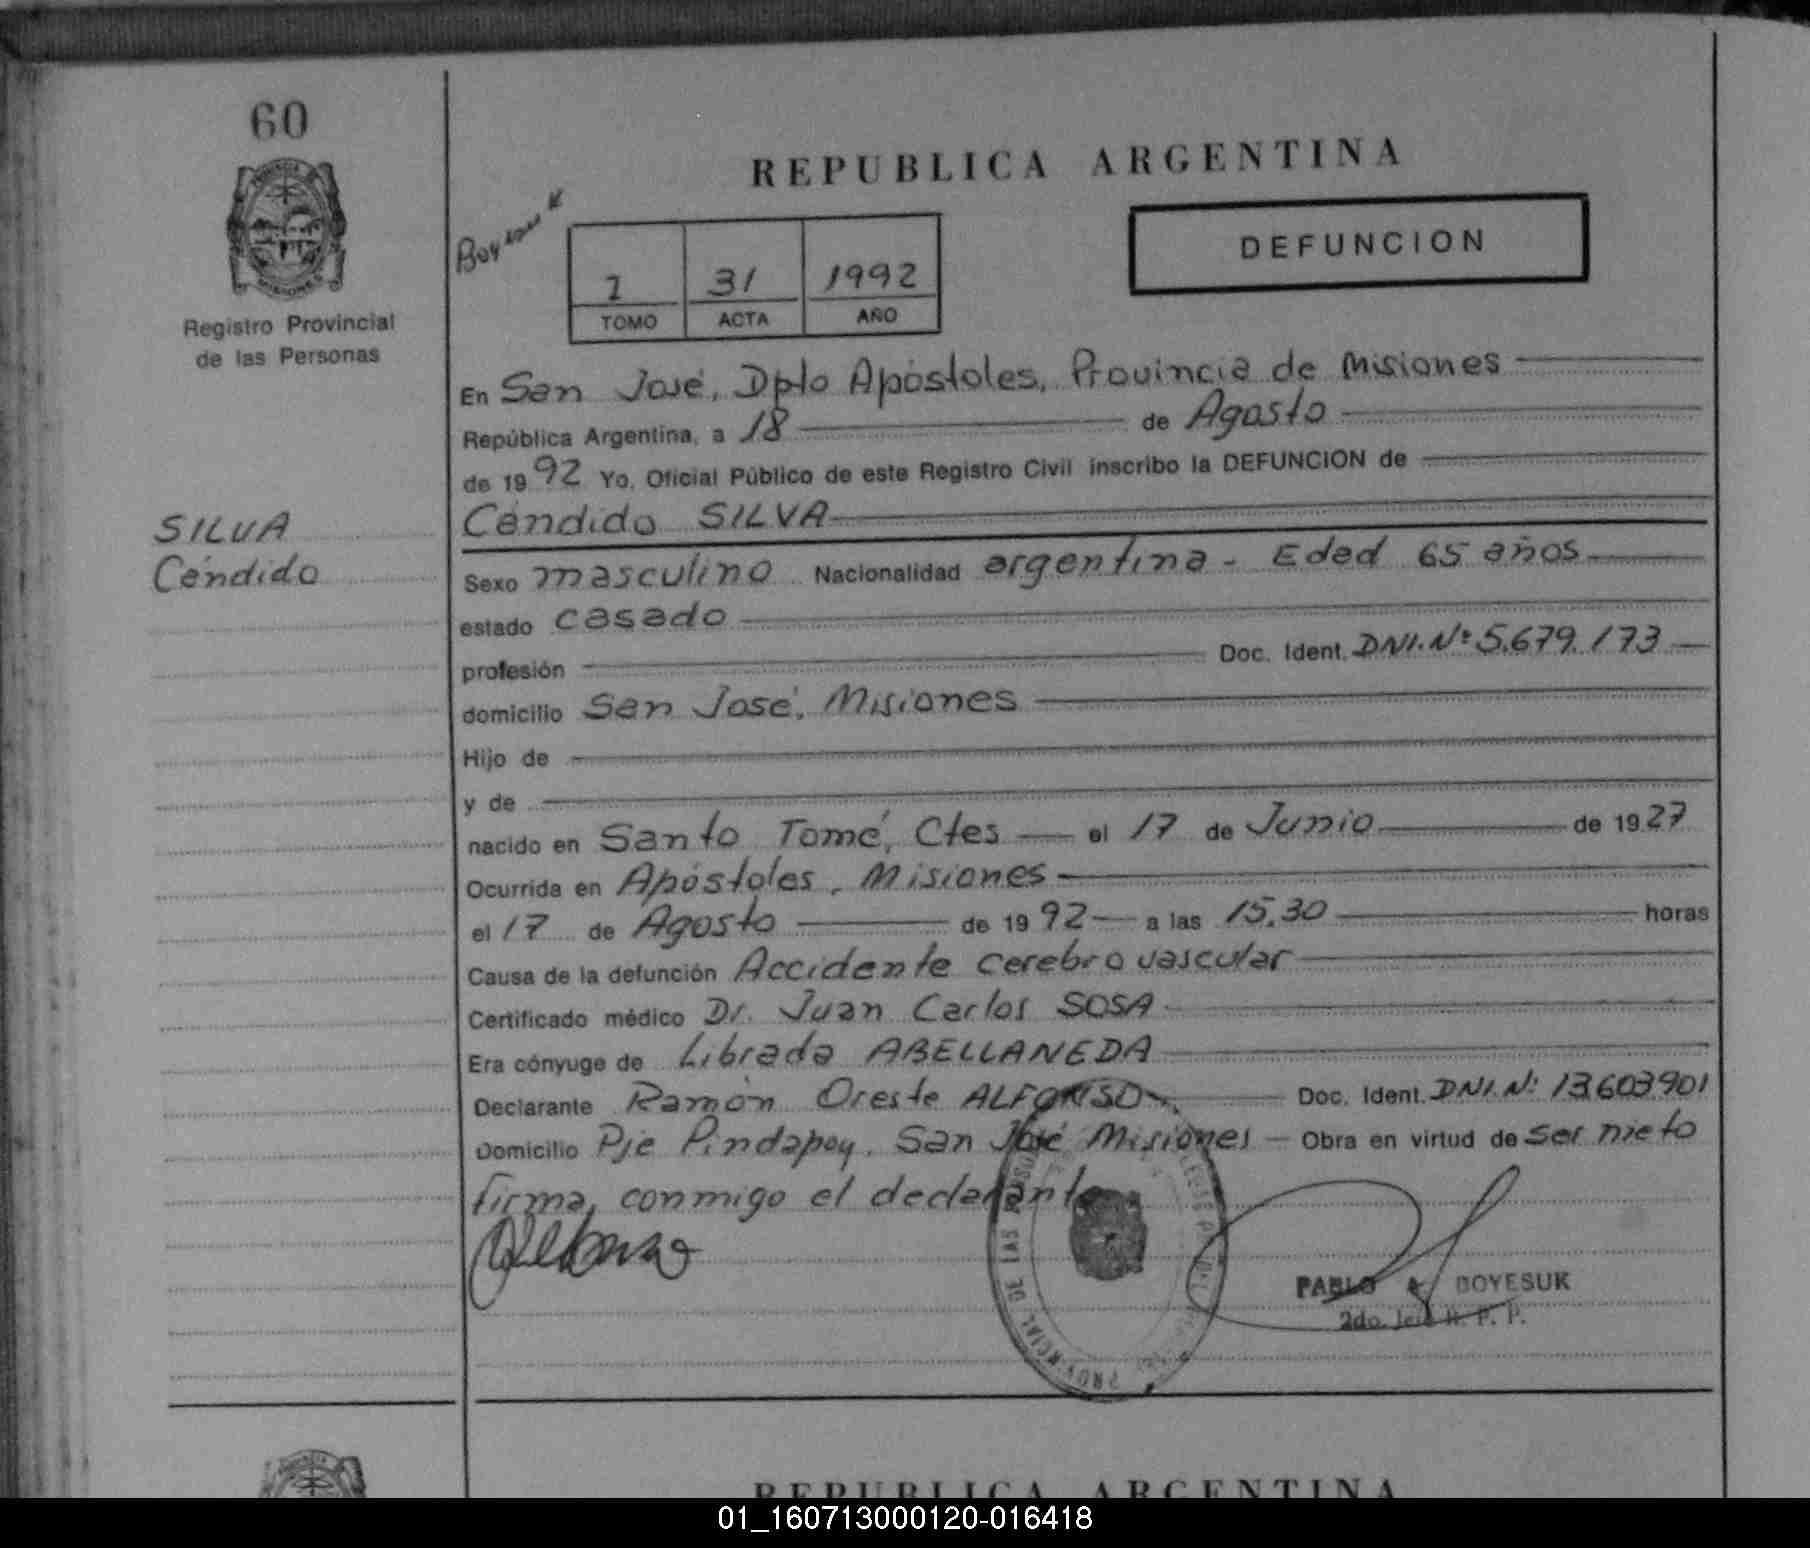 60
MISIONES
Registro Provincial
de las Personas
SILVA
Cándido
REPUBLICA ARGENTINA
DEFUNCION
1 31 1992
TOMO ACTA AÑO
En San José, Dpto Apóstoles, Provincia de Misiones
República Argentina, a 18 de Agosto
de 1992 Yo, Oficial Público de este Registro Civil inscribo la DEFUNCION de
Cándido SILVA
Sexo masculino Nacionalidad argentina - Edad 65 años
estado casado
profesión Doc. Ident. DNI. Nº 5.679.173
domicilio San José, Misiones
Hijo de
y de
nacido en Santo Tomé, Ctes el 17 de Junio de 1927
Ocurrida en Apóstoles, Misiones
el 17 de Agosto de 1992 a las 15,30 horas
Causa de la defunción Accidente cerebro vascular
Certificado médico Dr. Juan Carlos SOSA
Era cónyuge de Librada ABELLANEDA
Declarante Ramón Oreste ALFONSO Doc. Ident. DNI. Nº 13.603.901
Domicilio Pje Pindapoy, San José Misiones Obra en virtud de ser nieto
firma, conmigo el declarante
PROVINCIAL DE LAS
PABLO A. BOYESUK
2do. Jefe R. P. P.
REPUBLICA ARGENTINA
01_160713000120-016418